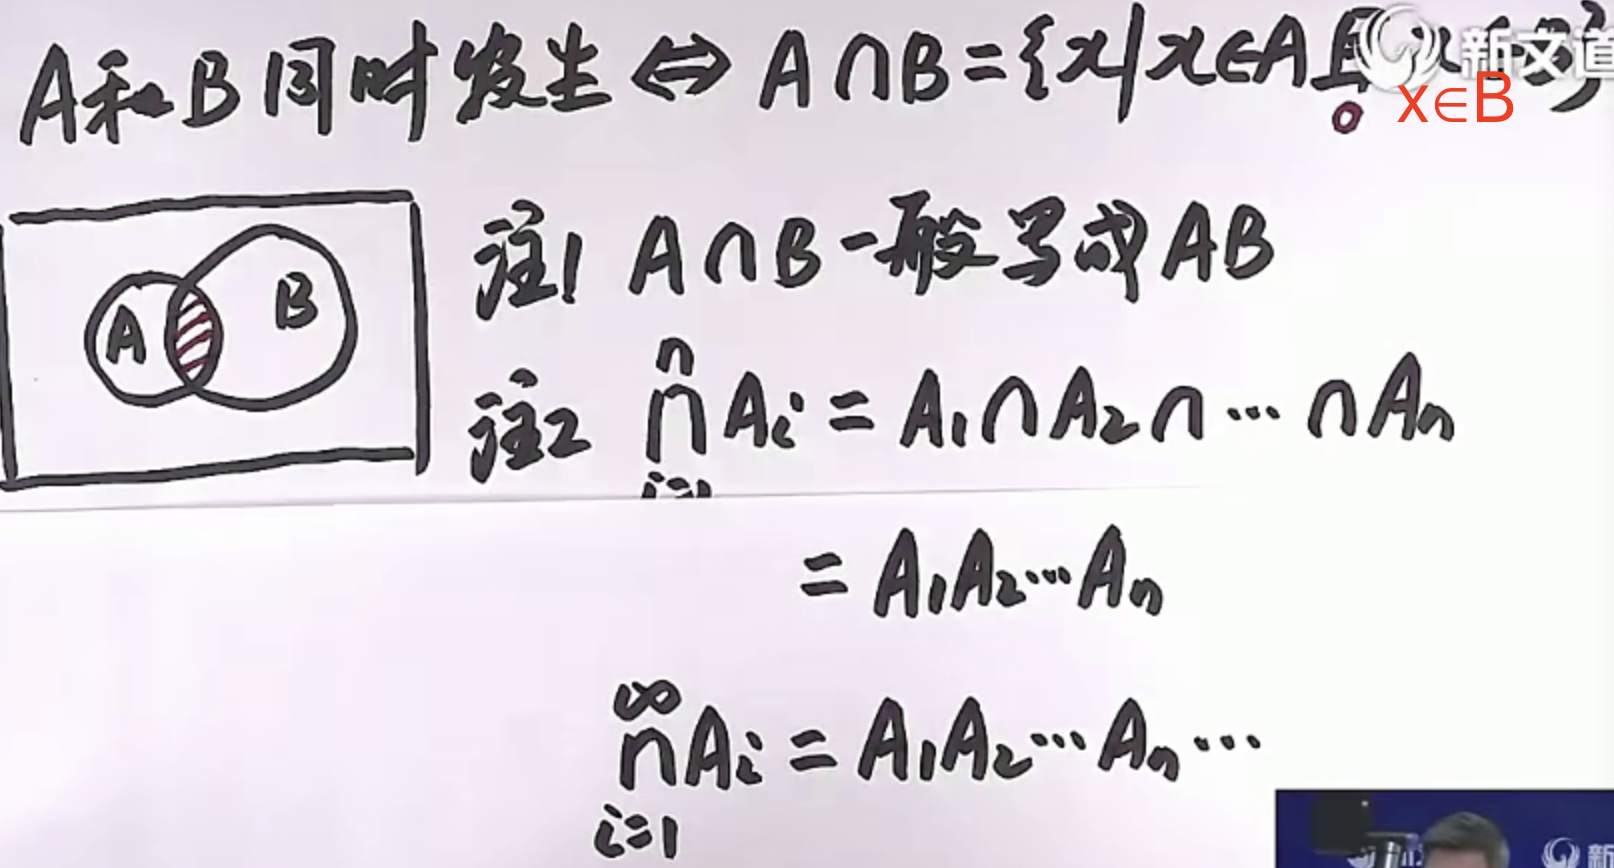 A和B同时发生 ⇔ A∩B={x|x∈A且
新文道
x∈B
A B
注1 A∩B一般写成AB
注2 n∩i=1 Ai = A1∩A2∩…∩An
= A1A2…An
∞∩i=1 Ai = A1A2…An…
新